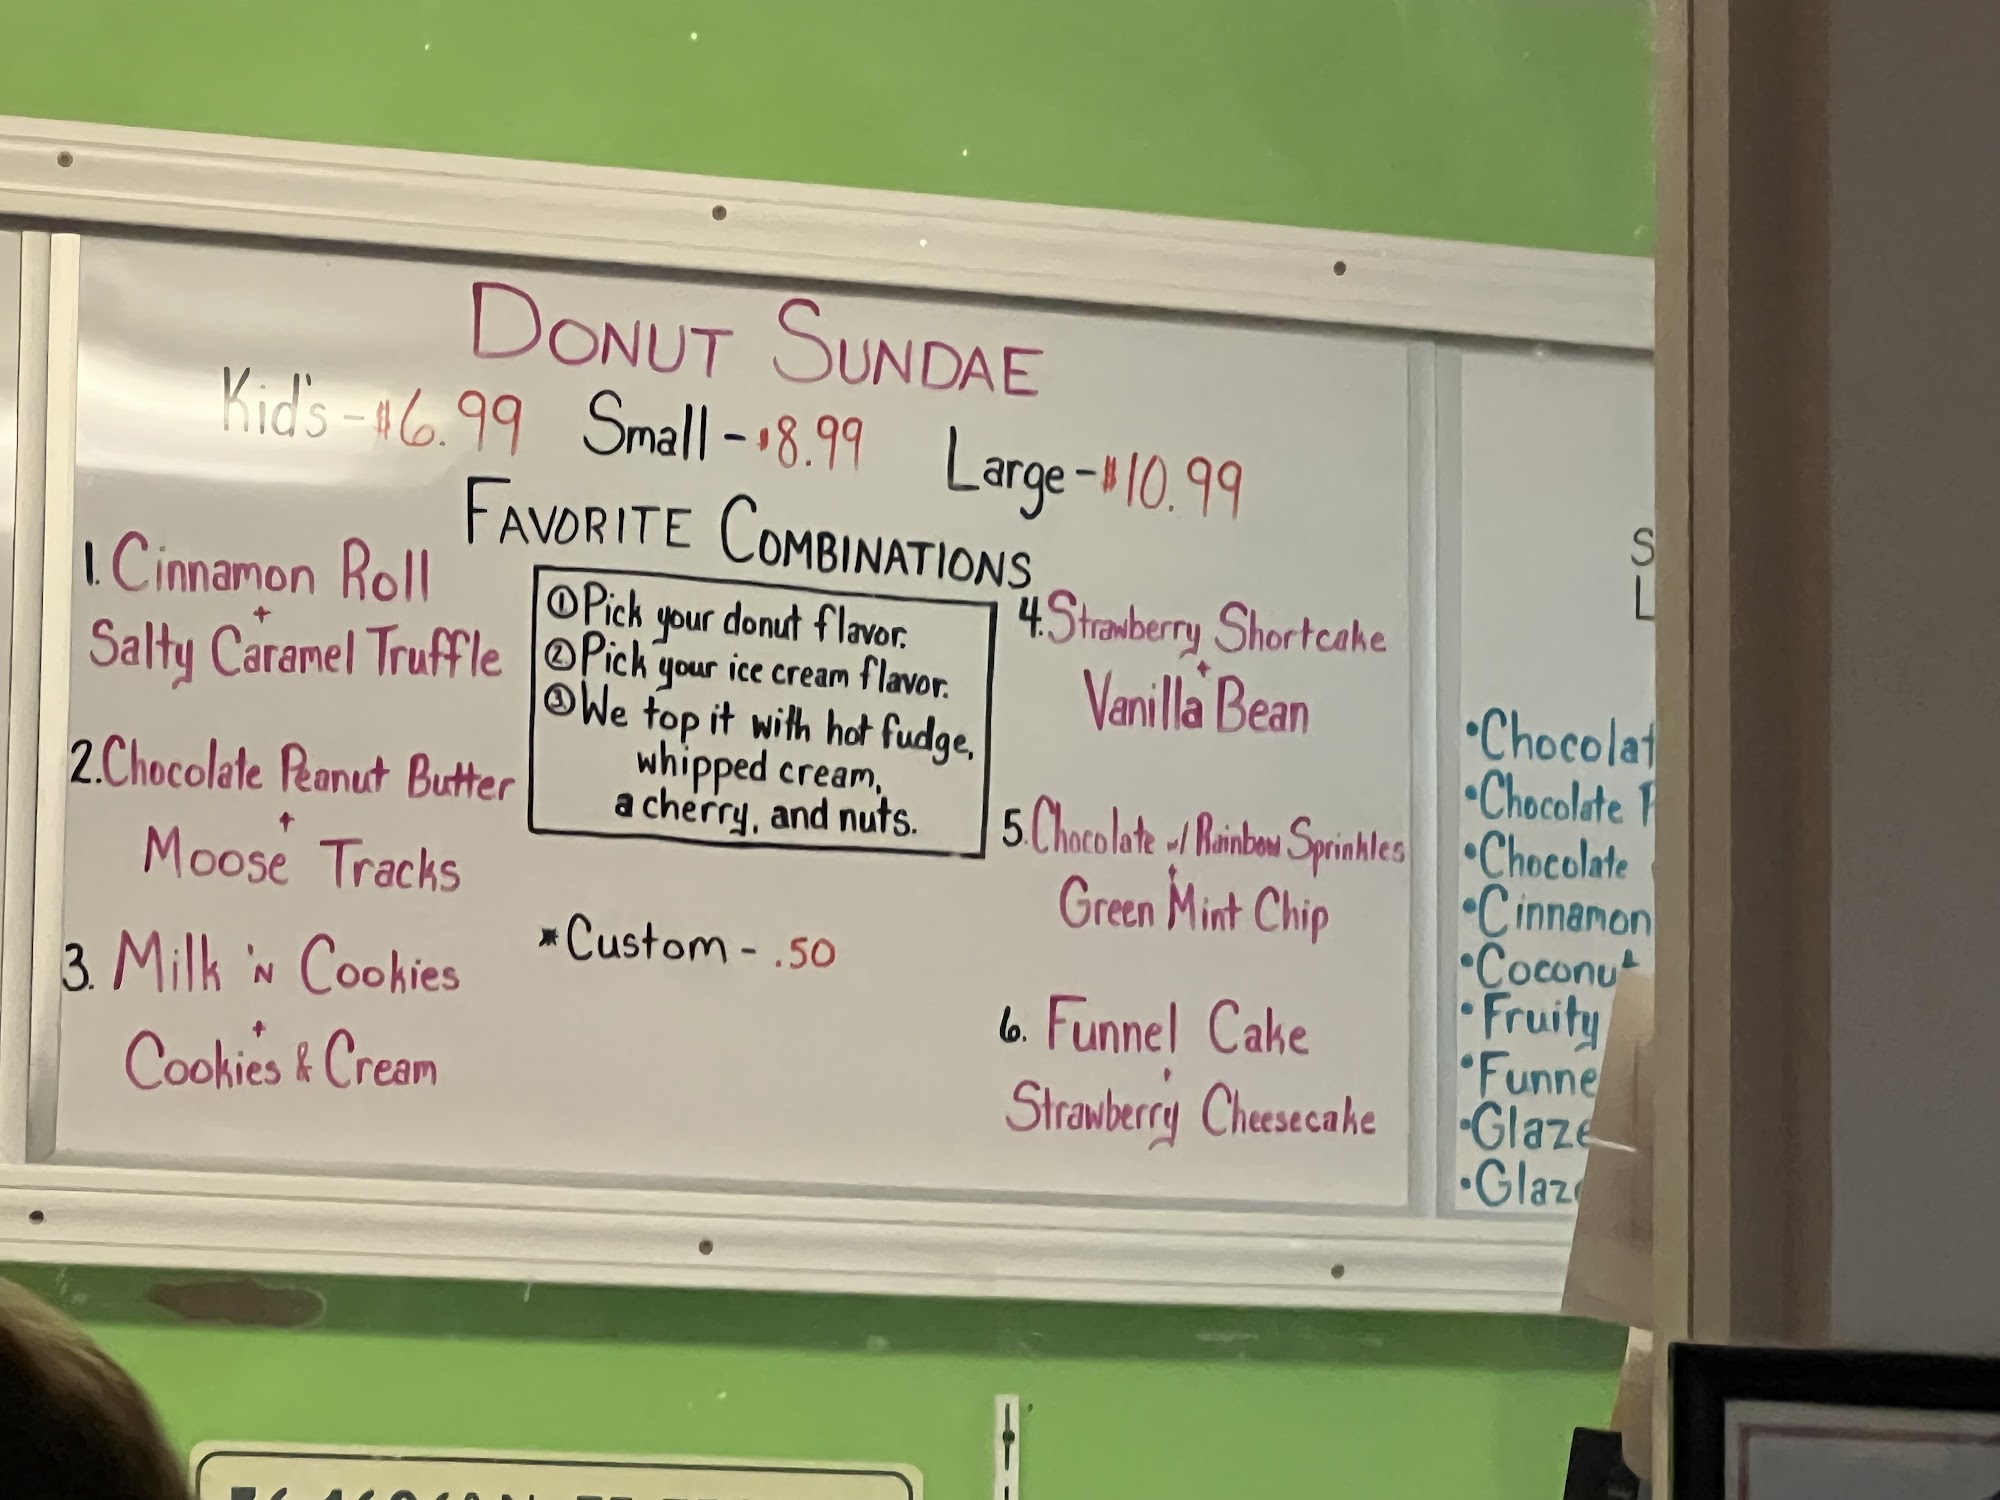 DONUT SUNDAE
Kid's - $6.99 Small - $8.99 Large - $10.99
FAVORITE COMBINATIONS
1. Cinnamon Roll
+
Salty Caramel Truffle
2. Chocolate Peanut Butter
+
Moose Tracks
3. Milk 'N Cookies
+
Cookies & Cream
① Pick your donut flavor.
② Pick your ice cream flavor.
③ We top it with hot fudge,
whipped cream,
a cherry, and nuts.
* Custom - .50
4. Strawberry Shortcake
+
Vanilla Bean
5. Chocolate w/ Rainbow Sprinkles
+
Green Mint Chip
6. Funnel Cake
+
Strawberry Cheesecake
S
L
• Chocolat
• Chocolate P
• Chocolate
• Cinnamon
• Coconut
• Fruity
• Funne
• Glaze
• Glaz